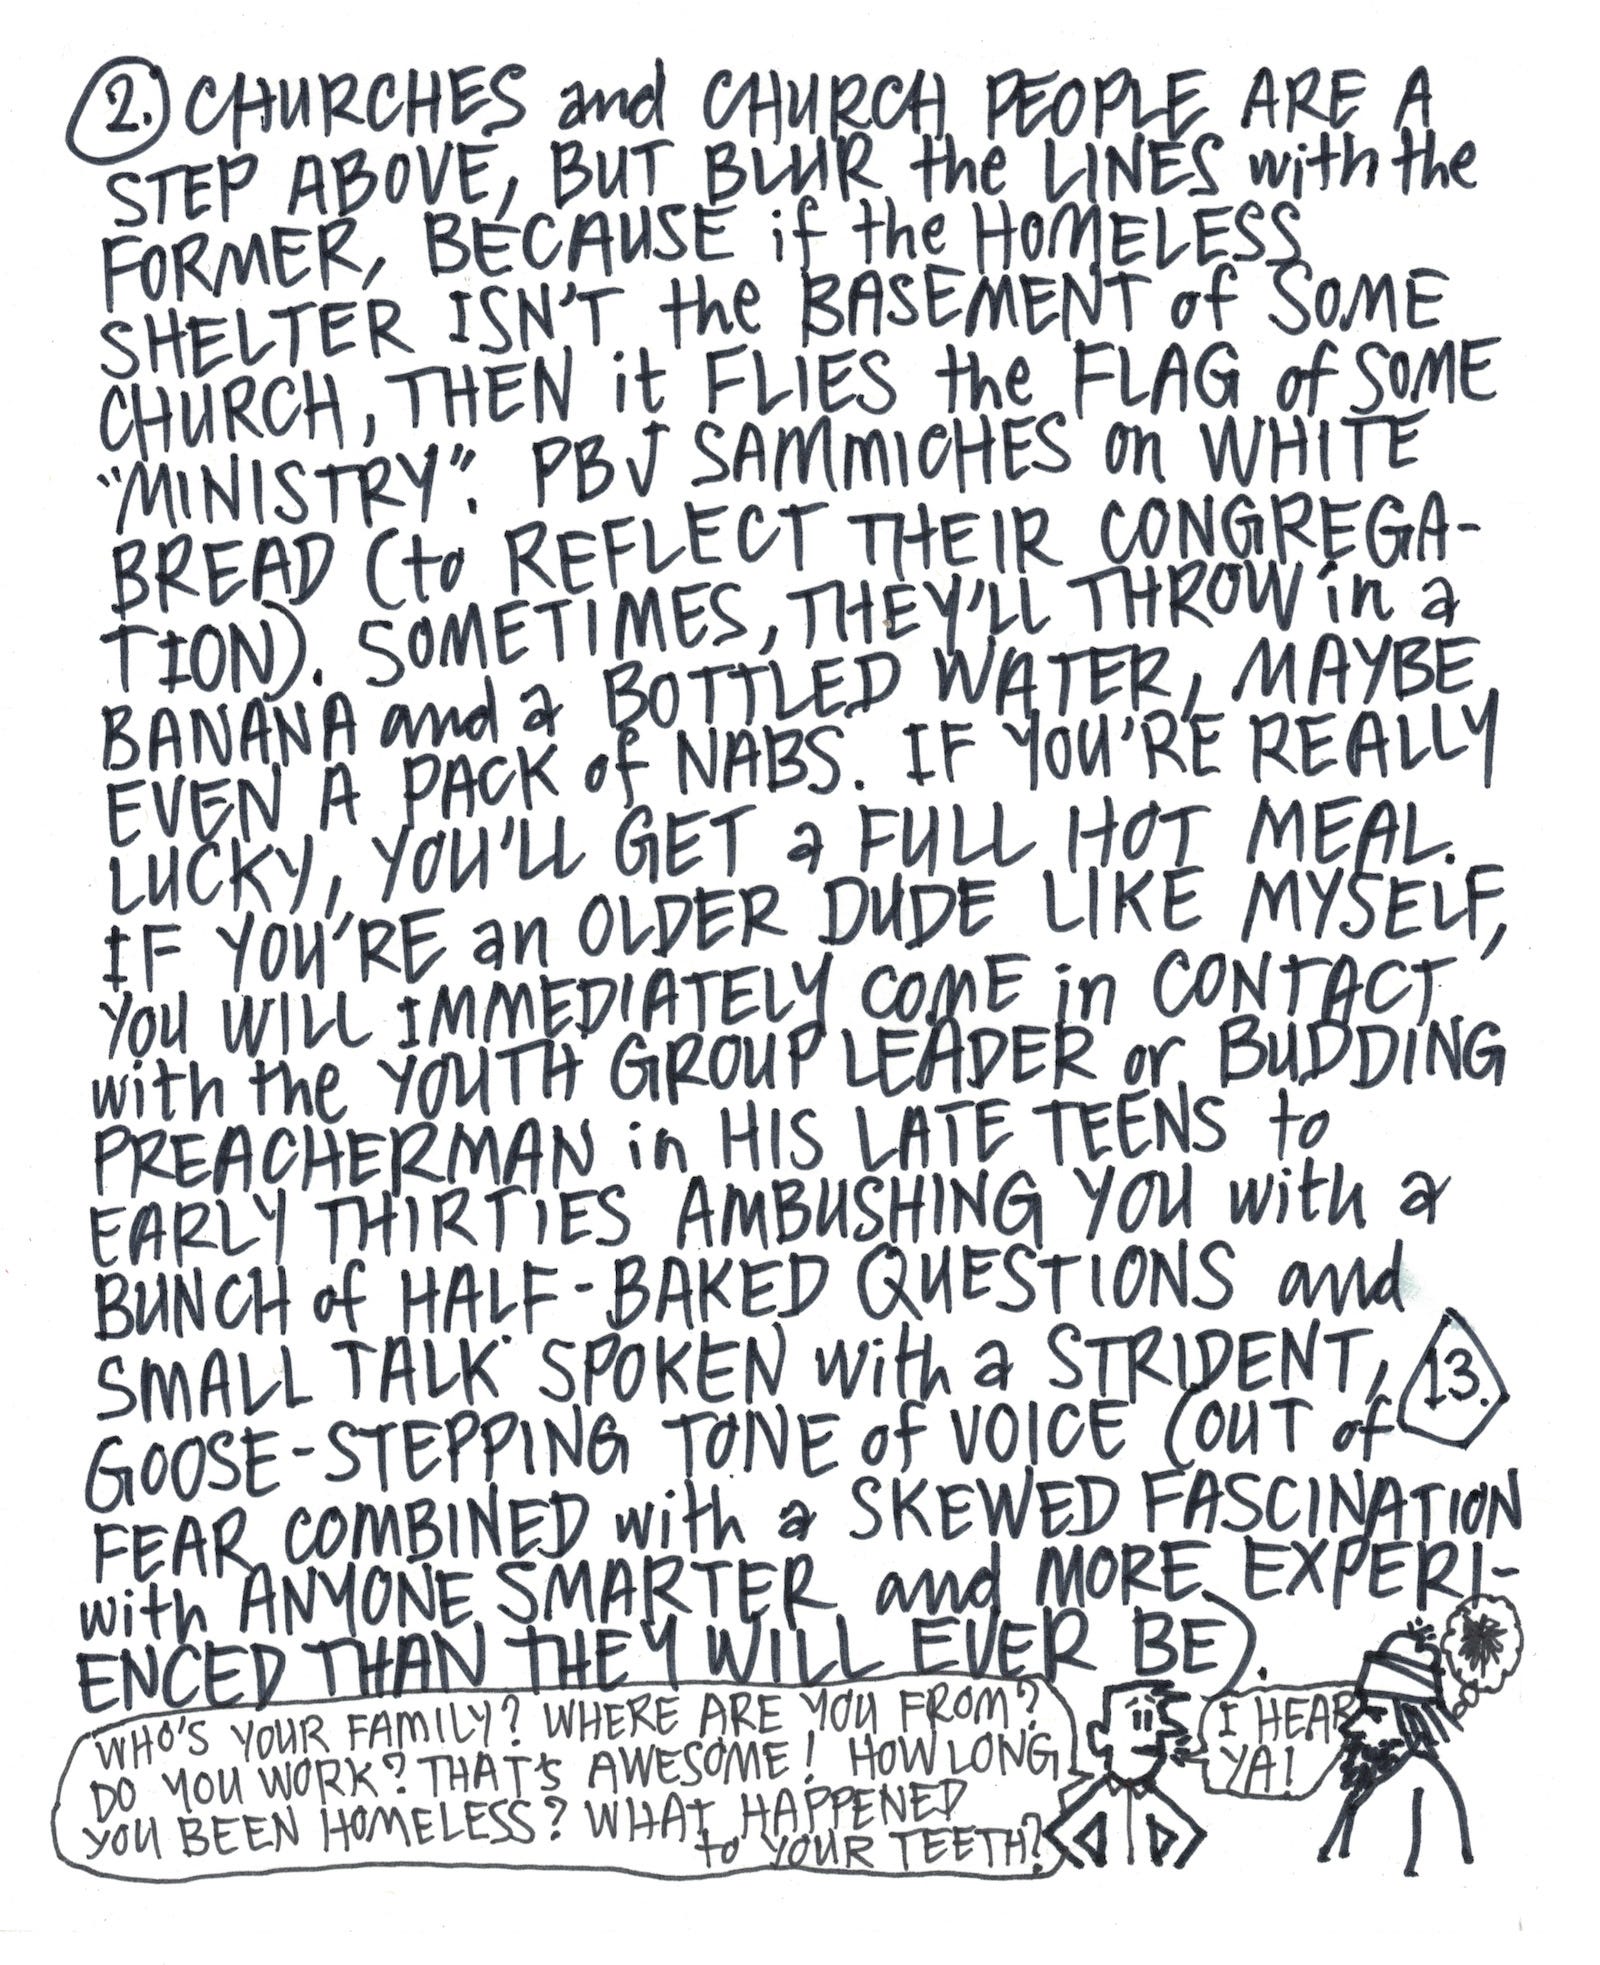 2. CHURCHES and CHURCH PEOPLE ARE A
STEP ABOVE, BUT BLUR the LINES with the
FORMER, BECAUSE if the HOMELESS
SHELTER ISN'T the BASEMENT of SOME
CHURCH, THEN it FLIES the FLAG of SOME
"MINISTRY". PBJ SAMMICHES on WHITE
BREAD (to REFLECT THEIR CONGREGA-
TION). SOMETIMES, THEY'LL THROW in a
BANANA and a BOTTLED WATER, MAYBE
EVEN A PACK of NABS. IF YOU'RE REALLY
LUCKY, YOU'LL GET a FULL HOT MEAL.
IF YOU'RE an OLDER DUDE LIKE MYSELF,
YOU WILL IMMEDIATELY COME in CONTACT
with the YOUTH GROUP LEADER or BUDDING
PREACHERMAN in HIS LATE TEENS to
EARLY THIRTIES AMBUSHING YOU with a
BUNCH of HALF-BAKED QUESTIONS and
SMALL TALK SPOKEN with a STRIDENT,
GOOSE-STEPPING TONE of VOICE (OUT of
13.
FEAR COMBINED with a SKEWED FASCINATION
with ANYONE SMARTER and MORE EXPERI-
ENCED THAN THEY WILL EVER BE).
WHO'S YOUR FAMILY? WHERE ARE YOU FROM?
DO YOU WORK? THAT'S AWESOME! HOW LONG
YOU BEEN HOMELESS? WHAT HAPPENED
to YOUR TEETH?
I HEAR
YA!